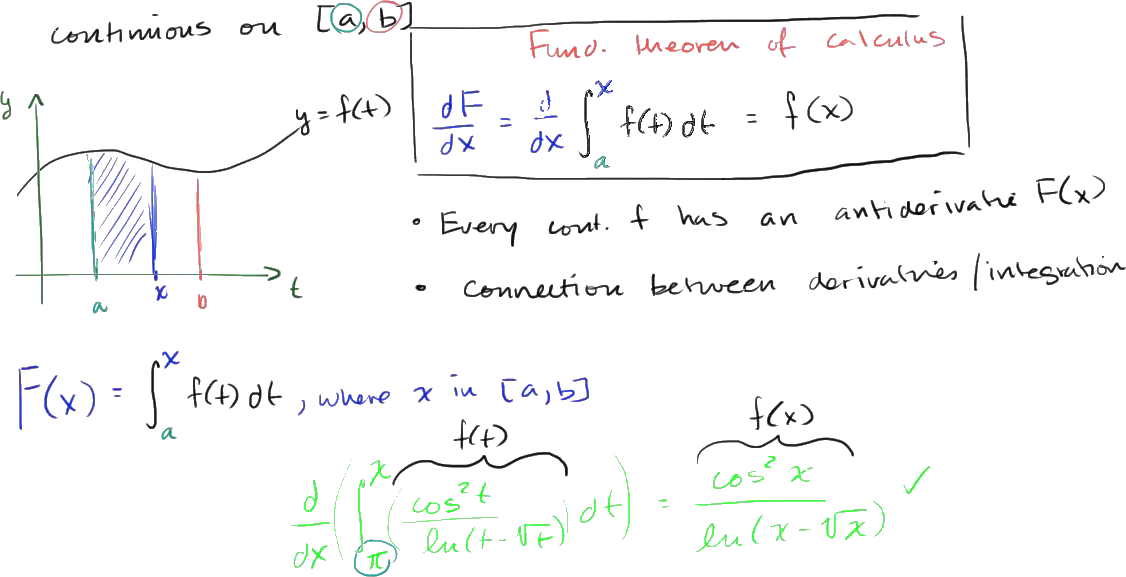 continuous on [a, b]
Fund. theorem of calculus
y
y = f(t)
dF/dx = d/dx ∫_a^x f(t) dt = f(x)
• Every cont. f has an antiderivative F(x)
t
• connection between derivatives/integration
a x b
F(x) = ∫_a^x f(t) dt, where x in [a,b]
f(t) f(x)
d/dx (∫_π^x (cos²t / ln(t-√t)) dt) = cos²x / ln(x-√x) ✓